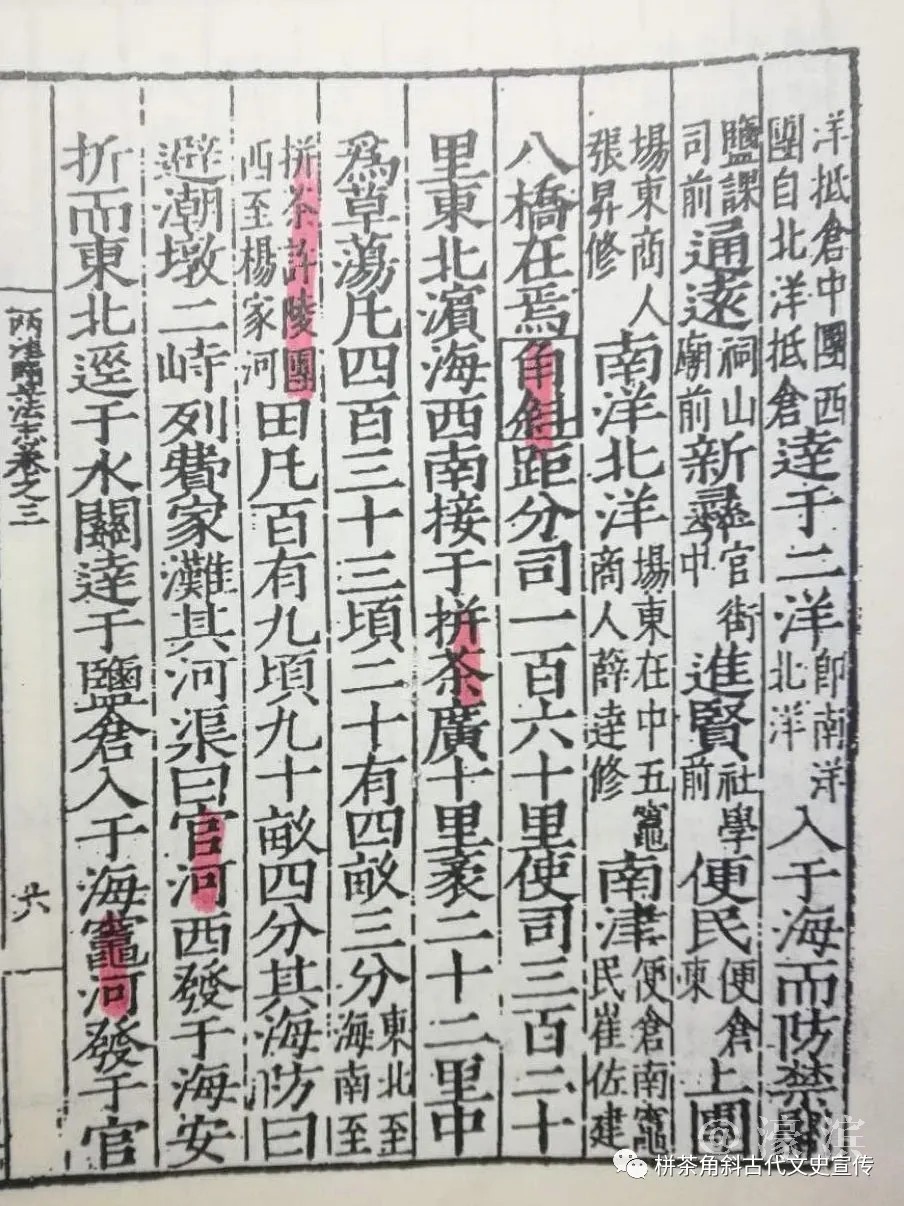 洋抵倉中團西團自北洋抵倉達于二洋即南洋北洋入于海而防禁
鹽課司前通遠祠山廟前新彝官街中進賢社學前便民便倉東上團
場東商人張昇修南洋北洋場東在中五竈商人薛逹修南津便倉南竈民崔佐建
八橋在焉角斜距分司一百六十里使司三百二十
里東北濵海西南接于拼茶廣十里袤二十二里中
爲草蕩凡四百三十三頃二十有四畝三分東北至海南至
拼茶許陵團西至楊家河田凡百有九頃九十畝四分其海防曰
避潮墩二峙列費家灘其河渠曰官河西發于海安
折而東北逕于水關達于鹽倉入于海竈河發于官
兩淮鹽法志卷之三
六
@濠滨
栟茶角斜古代文史宣传